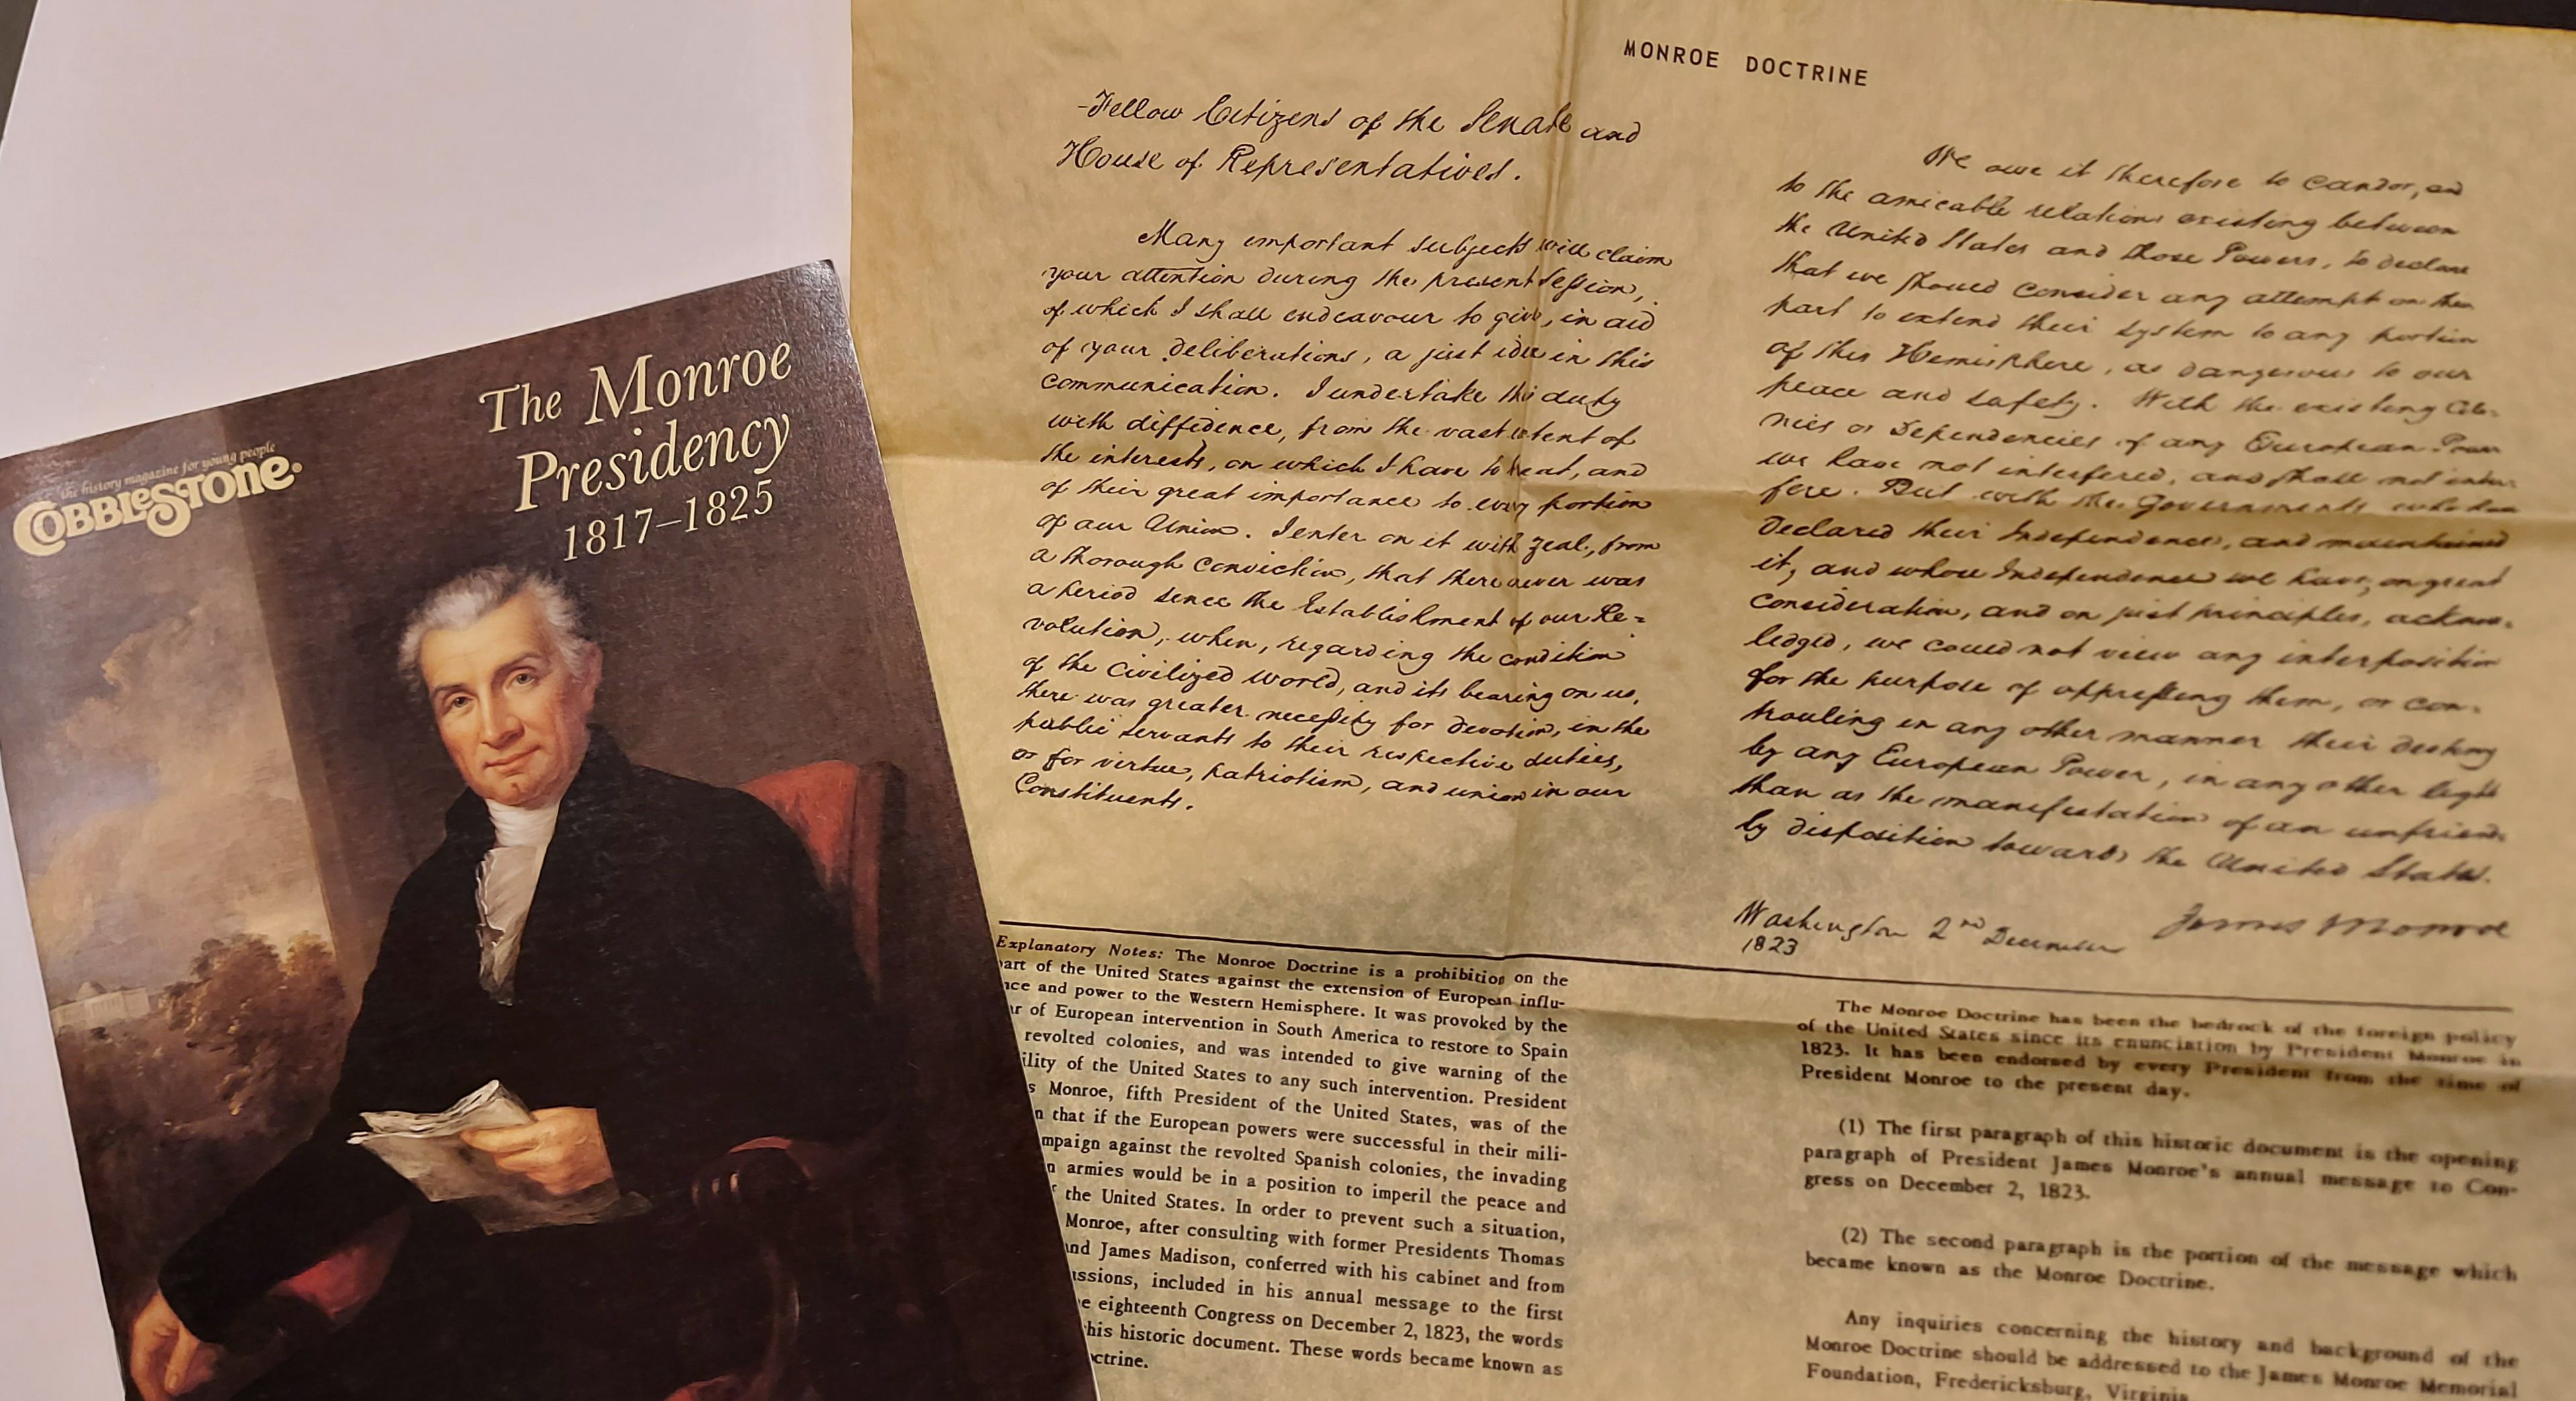 The Monroe
Presidency
1817–1825
the history magazine for young people
COBBLESTONE®
MONROE DOCTRINE
Fellow Citizens of the Senate and
House of Representatives.
Many important subjects will claim
your attention during the present Session,
of which I shall endeavour to give, in aid
of your deliberations, a just idea in this
communication. I undertake this duty
with diffidence, from the vast extent of
the interests, on which I have to treat, and
of their great importance to every portion
of our Union. I enter on it with zeal, from
a thorough conviction, that there never was
a period since the Establishment of our Re=
volution, when, regarding the condition
of the civilized world, and its bearing on us,
there was greater necessity for devotion, in the
public servants to their respective duties,
or for virtue, patriotism, and union in our
Constituents.
We owe it therefore to candor, and
to the amicable relations existing between
the United States and those Powers, to declare
that we should consider any attempt on their
part to extend their system to any portion
of this Hemisphere, as dangerous to our
peace and safety. With the existing Colo-
nies or Dependencies of any European Power
we have not interfered, and shall not inter-
fere. But with the Governments who have
declared their Independence, and maintained
it, and whose Independence we have, on great
consideration, and on just principles, acknow-
ledged, we could not view any interposition
for the purpose of oppressing them, or con-
trouling in any other manner their destiny
by any European Power, in any other light
than as the manifestation of an unfriend-
ly disposition towards the United States.
Washington 2nd December
1823
James Monroe
Explanatory Notes: The Monroe Doctrine is a prohibition on the
art of the United States against the extension of European influ-
ce and power to the Western Hemisphere. It was provoked by the
r of European intervention in South America to restore to Spain
revolted colonies, and was intended to give warning of the
ility of the United States to any such intervention. President
s Monroe, fifth President of the United States, was of the
n that if the European powers were successful in their mili-
mpaign against the revolted Spanish colonies, the invading
n armies would be in a position to imperil the peace and
the United States. In order to prevent such a situation,
Monroe, after consulting with former Presidents Thomas
nd James Madison, conferred with his cabinet and from
ussions, included in his annual message to the first
e eighteenth Congress on December 2, 1823, the words
his historic document. These words became known as
ctrine.
The Monroe Doctrine has been the bedrock of the foreign policy
of the United States since its enunciation by President Monroe in
1823. It has been endorsed by every President from the time of
President Monroe to the present day.
(1) The first paragraph of this historic document is the opening
paragraph of President James Monroe's annual message to Con-
gress on December 2, 1823.
(2) The second paragraph is the portion of the message which
became known as the Monroe Doctrine.
Any inquiries concerning the history and background of the
Monroe Doctrine should be addressed to the James Monroe Memorial
Foundation, Fredericksburg, Virginia